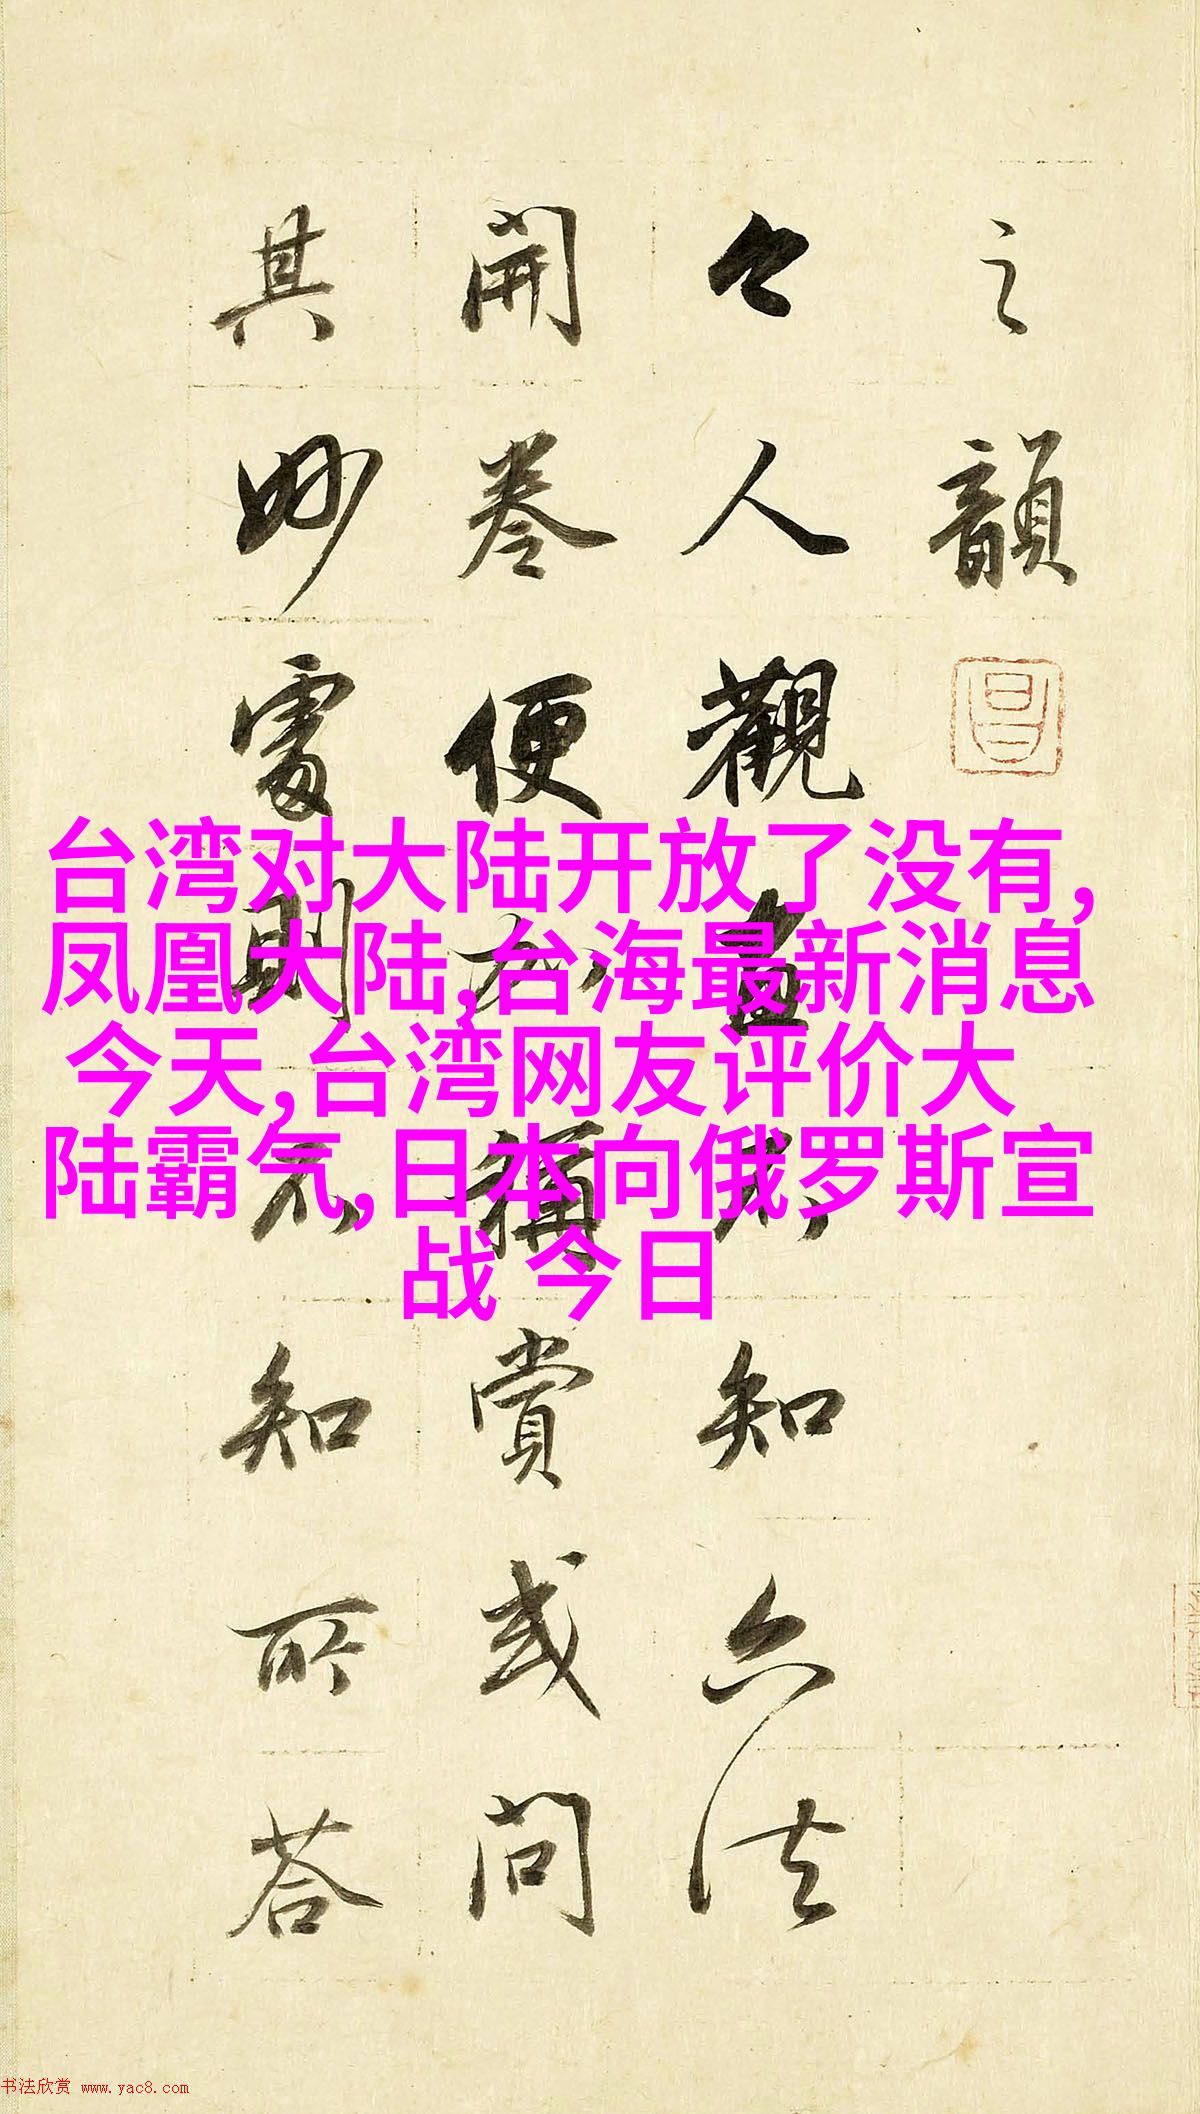 之韻
今人觀畫不知六法
開卷便加稱賞或問
其妙處則不知所答
台湾对大陆开放了没有,
凤凰大陆,台海最新消息
今天,台湾网友评价大
陆霸气,日本向俄罗斯宣
战 今日
书法欣赏 www.yac8.com